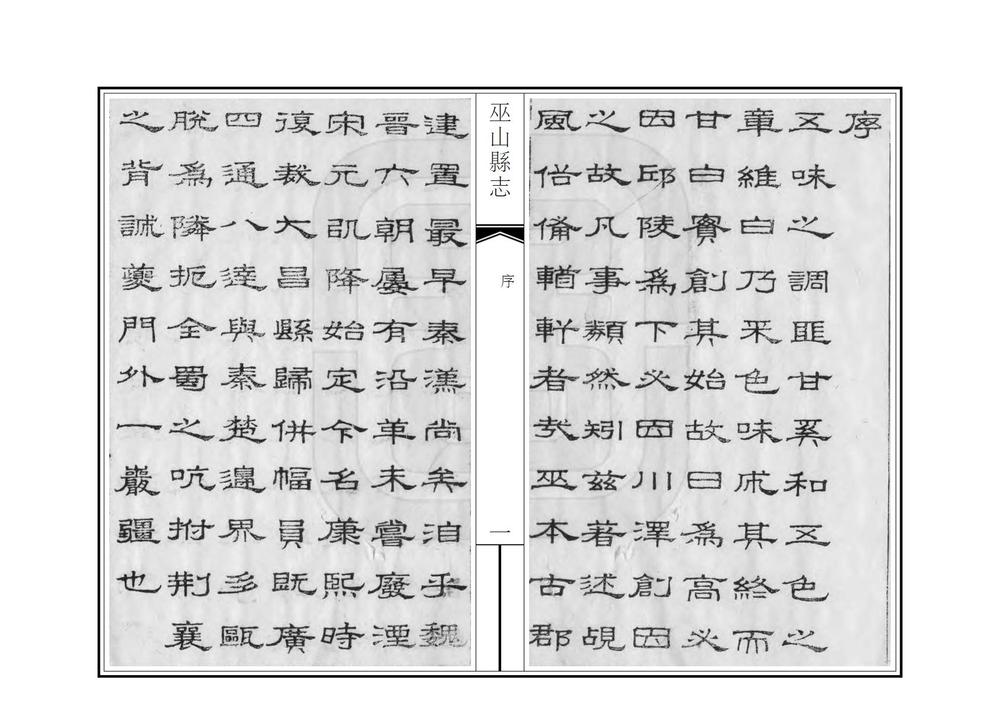 序
五味之調匪甘奚和五色之
章維白乃采色味成其終而
甘白實創其始故曰為高必
因邱陵為下必因川澤創因
之故凡事類然矧茲著述覘
風俗備輶軒者哉巫本古郡
巫山縣志
序
一
建置最早秦漢尚矣洎乎魏
晉六朝屢有沿革未嘗廢湮
宋元以降始定今名康熙時
復裁大昌縣歸併幅員既廣
四通八達與秦楚邊界多甌
脫為隣扼全蜀之吭拊荊襄
之背誠夔門外一巖疆也